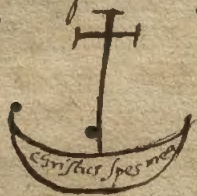 Christus spes mea